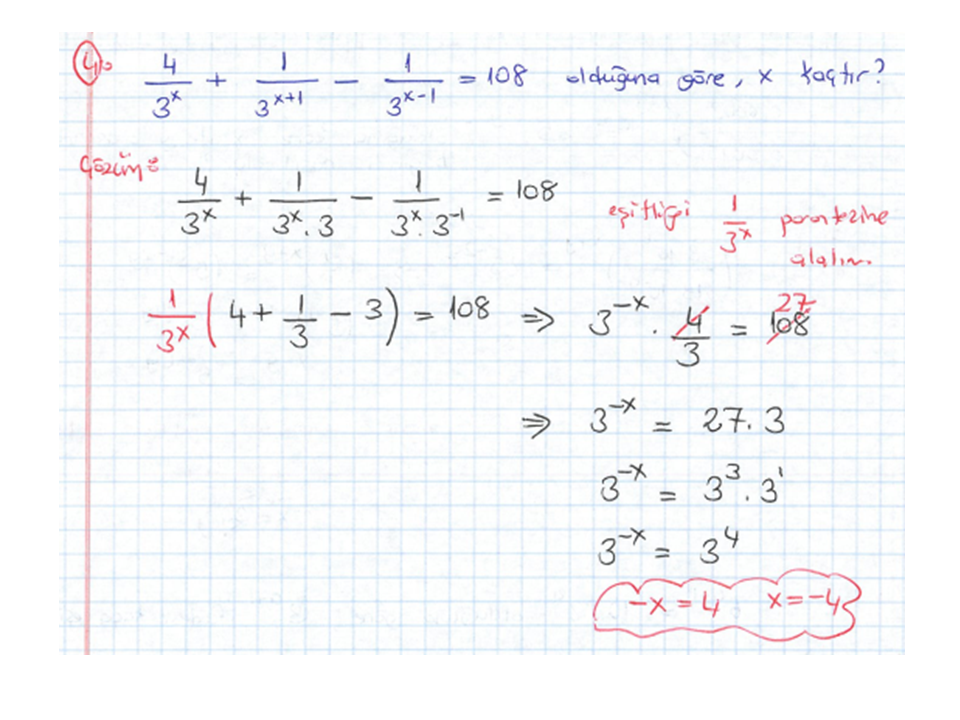 4) 4/3^x + 1/3^(x+1) − 1/3^(x-1) = 108 olduğuna göre, x kaçtır?
Çözüm:
4/3^x + 1/(3^x . 3) − 1/(3^x . 3^-1) = 108
eşitliği 1/3^x parantezine
alalım.
1/3^x (4 + 1/3 − 3) = 108 ⇒ 3^-x . 4/3 = 108 27
⇒ 3^-x = 27.3
3^-x = 3^3 . 3^1
3^-x = 3^4
-x = 4 x = -4